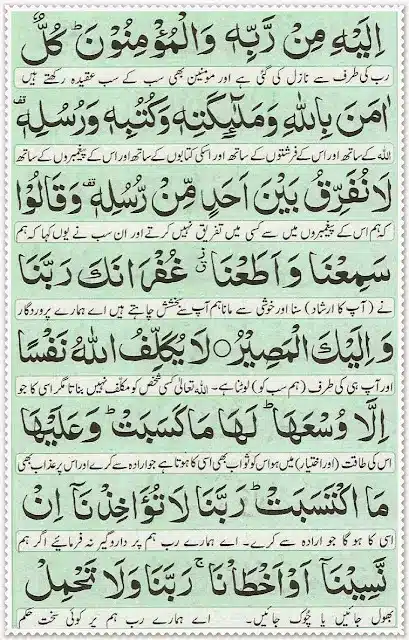 اِلَيْهِ مِنْ رَّبِّهٖ وَالْمُؤْمِنُوْنَ ؕ كُلٌّ
رب کی طرف سے نازل کی گئی ہے اور مومنین بھی سب کے سب عقیدہ رکھتے ہیں
اٰمَنَ بِاللّٰهِ وَمَلٰٓئِكَتِهٖ وَكُتُبِهٖ وَرُسُلِهٖ ۚقف
اللہ کے ساتھ اور اس کے فرشتوں کے ساتھ اور اسکی کتابوں کے ساتھ اور اس کے پیغمبروں کے ساتھ
لَا نُفَرِّقُ بَيْنَ اَحَدٍ مِّنْ رُّسُلِهٖ ۚقف وَقَالُوْا
کہ ہم اس کے پیغمبروں میں سے کسی میں تفریق نہیں کرتے اور ان سب نے یوں کہا کہ ہم
سَمِعْنَا وَاَطَعْنَا ؗ غُفْرَانَكَ رَبَّنَا
نے (آپ کا ارشاد) سنا اور خوشی سے مانا ہم آپ سے بخشش چاہتے ہیں اے ہمارے پروردگار
وَاِلَيْكَ الْمَصِيْرُ ○ لَا يُكَلِّفُ اللّٰهُ نَفْسًا
اور آپ ہی کی طرف (ہم سب کو) لوٹنا ہے۔ اللہ تعالیٰ کسی شخص کو مکلف نہیں بناتا مگر اسی کا جو
اِلَّا وُسْعَهَا ؕ لَهَا مَا كَسَبَتْ وَعَلَيْهَا
اس کی طاقت (اور اختیار) میں ہو اس کو ثواب بھی اسی کا ہوتا ہے جو ارادہ سے کرے اور اس پر عذاب بھی
مَا اكْتَسَبَتْ ؕ رَبَّنَا لَا تُؤَاخِذْنَاۤ اِنْ
اسی کا ہو گا جو ارادہ سے کرے۔ اے ہمارے رب ہم پر داروگیر نہ فرمائیے اگر ہم
نَّسِيْنَاۤ اَوْ اَخْطَاْنَا ۚ رَبَّنَا وَلَا تَحْمِلْ
بھول جائیں یا چُوک جائیں۔ اے ہمارے رب ہم پر کوئی سخت حکم